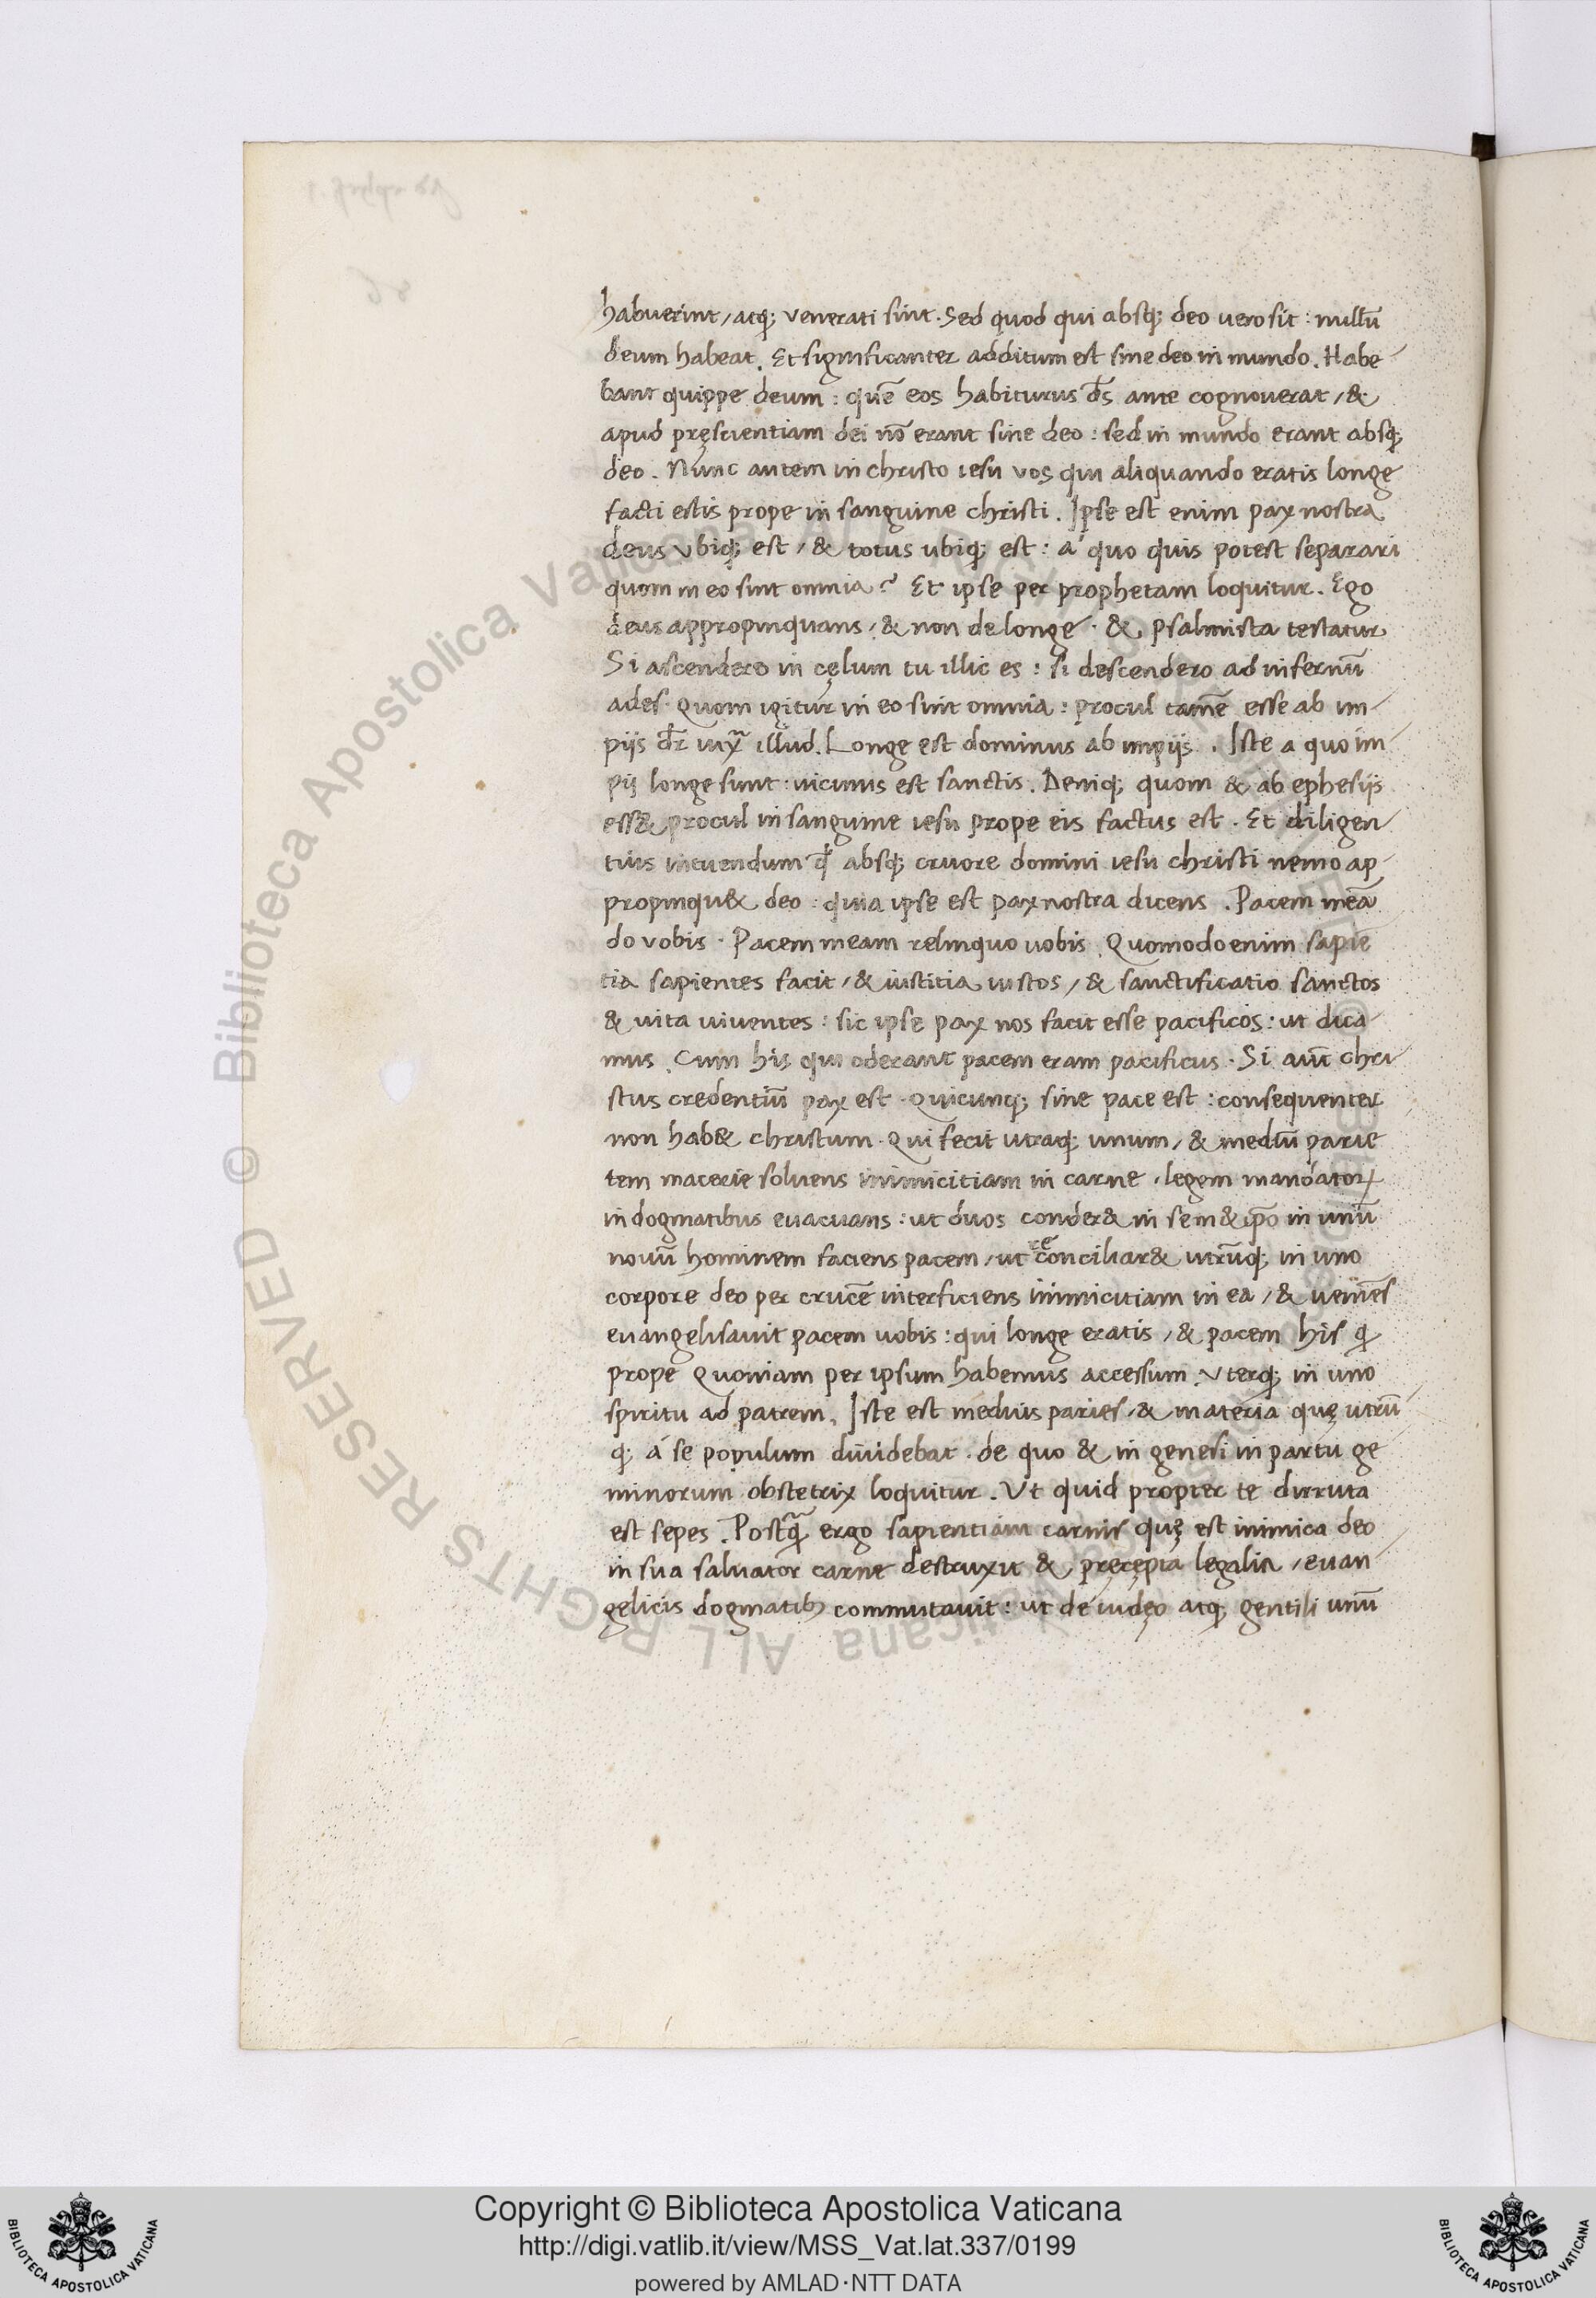 habuerint, atq; venerati sint. Sed quod qui absq; deo vero sit: nullũ
deum habeat. Et significanter additum est sine deo in mundo. Habe-
bant quippe deum: quẽ eos habiturus d̃s ante cognouerat, &
apud pręscientiam dei nõ erant sine deo: sed in mundo erant absq;
deo. Nunc autem in christo iesu vos qui aliquando eratis longe
facti estis prope in sanguine christi. Ipse est enim pax nostra
deus vbiq; est, & totus ubiq; est: á quo quis potest separari
quom in eo sint omnia? Et ipse per prophetam loquitur. Ego
deus appropinquans, & non de longe. & psalmista testatur
Si ascendero in cęlum tu illic es: si descendero ad infernũ
ades. Quom igitur in eo sint omnia: procul tamẽ esse ab im-
piis dr̃ iux̃ illud. Longe est dominus ab impiis. Iste a quo im-
pij longe sunt: uicinus est sanctis. Deniq; quom & ab ephesijs
ess& procul in sanguine iesu prope eis factus est. Et diligen-
tius intuendum q̃ absq; cruore domini iesu christi nemo ap-
propinqu& deo: quia ipse est pax nostra dicens. Pacem meã
do vobis. Pacem meam relinquo uobis. Quomodo enim sapiẽ
tia sapientes facit, & iustitia iustos, & sanctificatio sanctos
& uita uiuentes: sic ipse pax nos facit esse pacificos: ut dica-
mus. Cum his qui oderant pacem eram pacificus. Si aut̃ chri-
stus credentiũ pax est. Quicunq; sine pace est: consequenter
non hab& christum. Qui fecit utraq; unum, & mediũ parie
tem macerie soluens inimicitiam in carne, legem mandatorꝝ
in dogmatibus euacuans: ut duos conder& in sem&ip̃o in unũ
nouũ hominem faciens pacem, ut reconciliar& utrũq; in uno
corpore deo per crucẽ interficiens inimicitiam in ea, & ueniẽs
euangelisauit pacem uobis: qui longe eratis, & pacem his q
prope Quoniam per ipsum habemus accessum vterq; in uno
spiritu ad patrem. Iste est medius paries, & materia quę utrũ-
q; á se populum diuidebat. de quo & in genesi in partu ge
minorum obstetrix loquitur. Ut quid propter te dirruta
est sepes. Postq̃ ergo sapientiam carnis quę est inimica deo
in sua saluator carne destruxit & pręcępta legalia, euan-
gelicis dogmatib; commutauit: ut de iudęo atq; gentili unũ
Copyright © Biblioteca Apostolica Vaticana
http://digi.vatlib.it/view/MSS_Vat.lat.337/0199
powered by AMLAD·NTT DATA